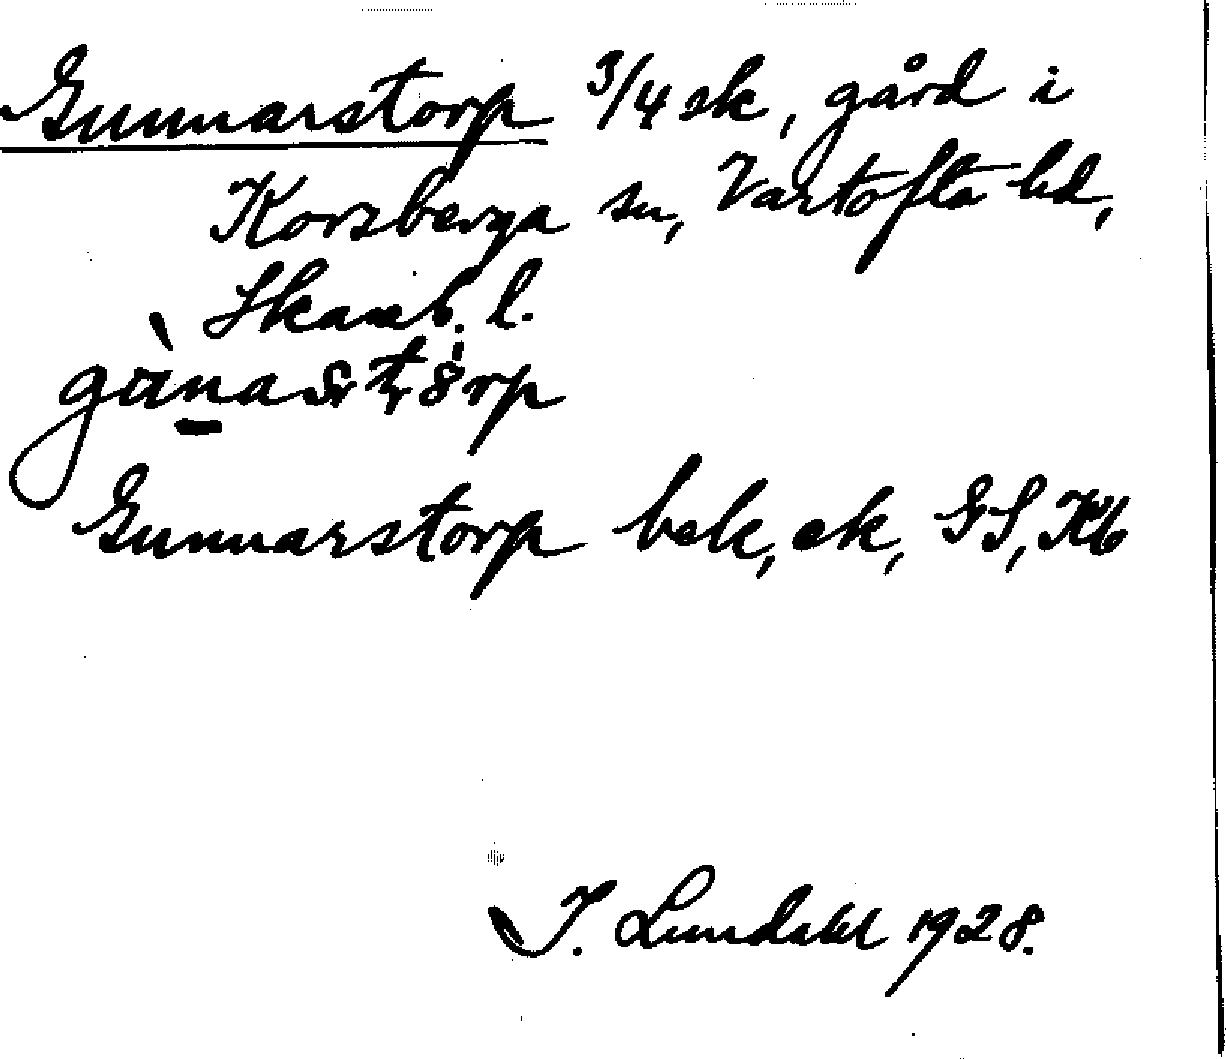 Gunnarstorp 3/4 sk, gård i
Korsberga sn, Vartofta hd,
Skarab. l.
Gunnarstorp bek, ek, GS, Kb
I. Lundahl 1928.